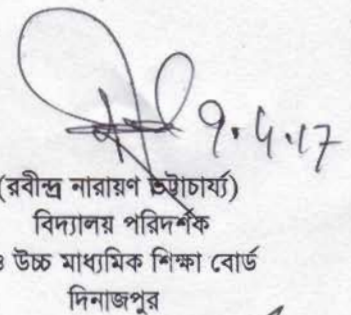 9.4.17
(রবীন্দ্র নারায়ণ ভট্টাচার্য্য)
বিদ্যালয় পরিদর্শক
ও উচ্চ মাধ্যমিক শিক্ষা বোর্ড
দিনাজপুর